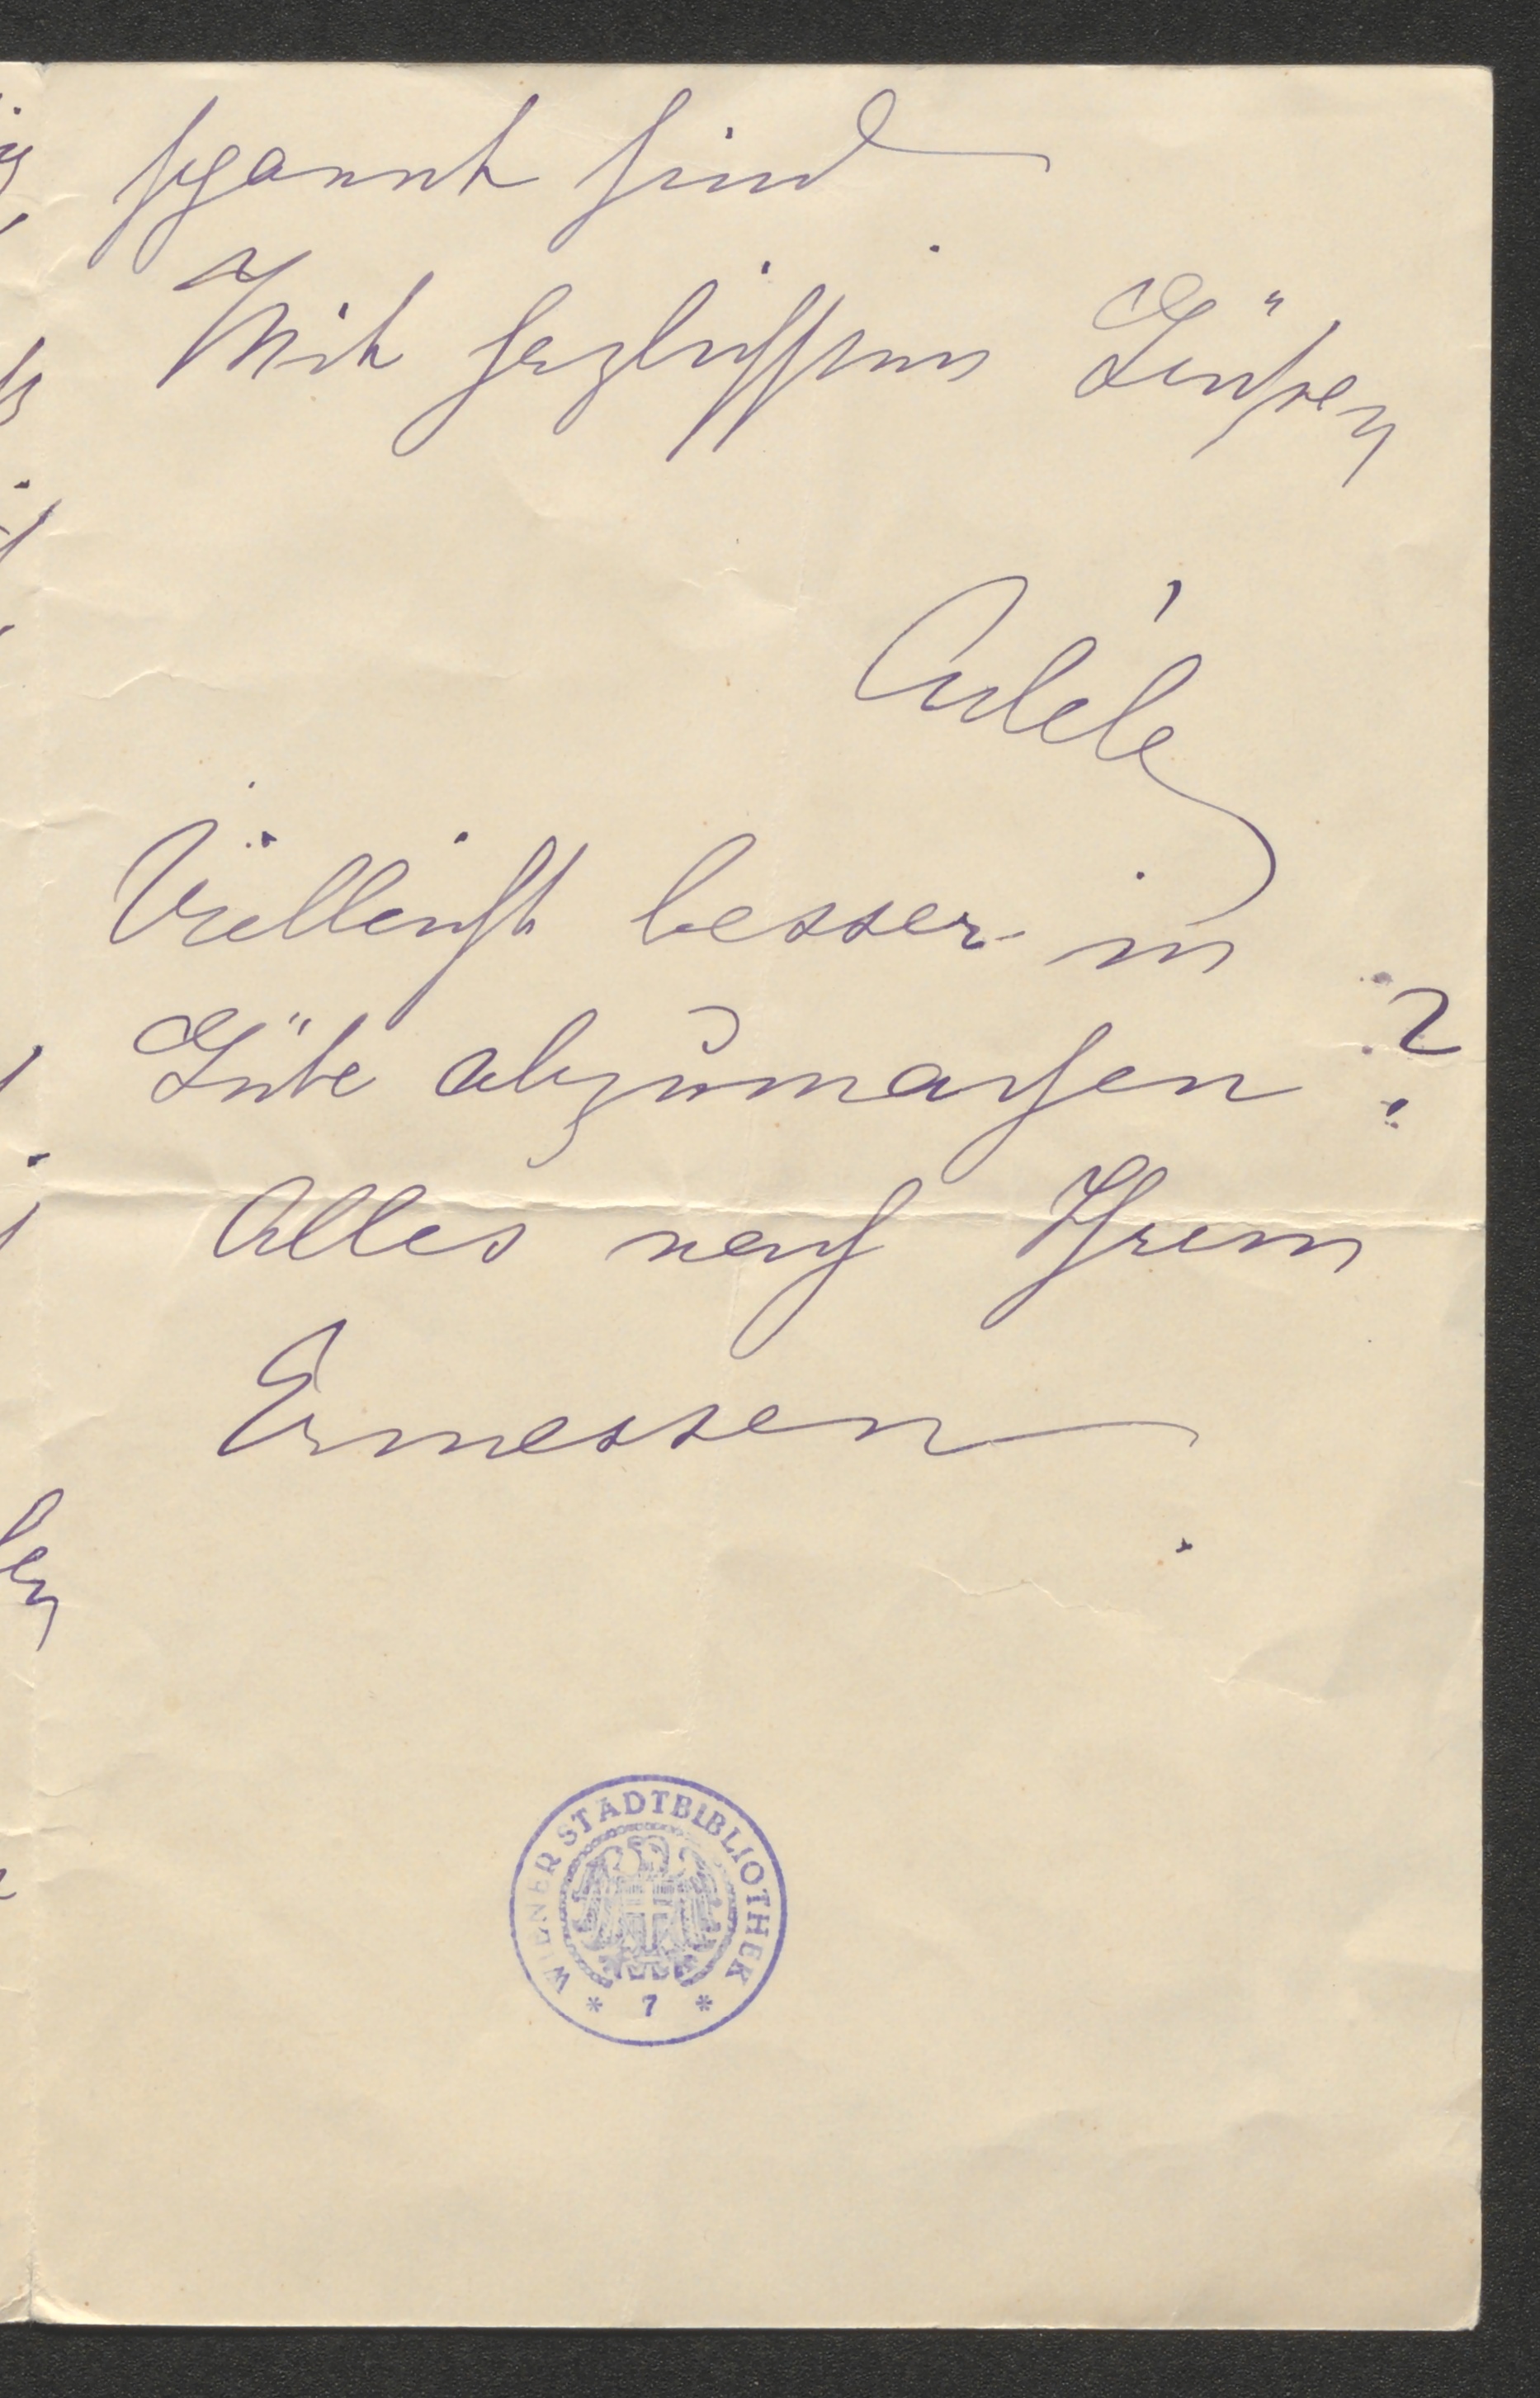 spannt sind
Mit herzlichsten Grüßen
Adèle
Vielleicht besser in
Güte abzumachen?
Alles nach Ihrem
Ermessen
WIENER STADTBIBLIOTHEK
* 7 *